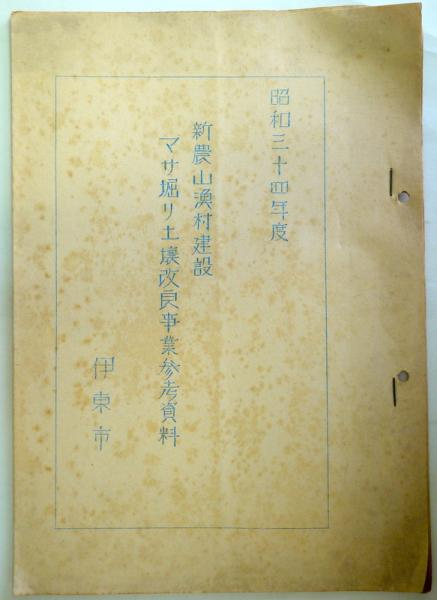 昭和三十四年度
新農山漁村建設
マサ堀リ土壌改良事業参考資料
伊東市